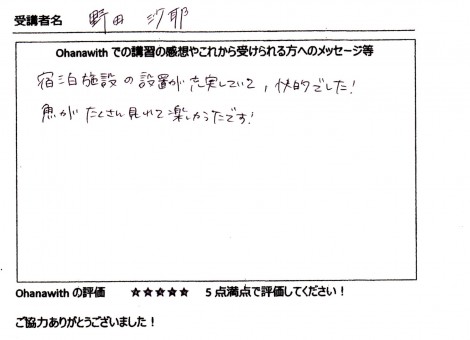 受講者名 野田 沙耶
Ohanawith での講習の感想やこれから受けられる方へのメッセージ等
宿泊施設の設置が充実していて，快的でした！
魚がたくさん見れて楽しかったです！
Ohanawith の評価 ☆☆☆☆☆ 5 点満点で評価してください！
ご協力ありがとうございました！